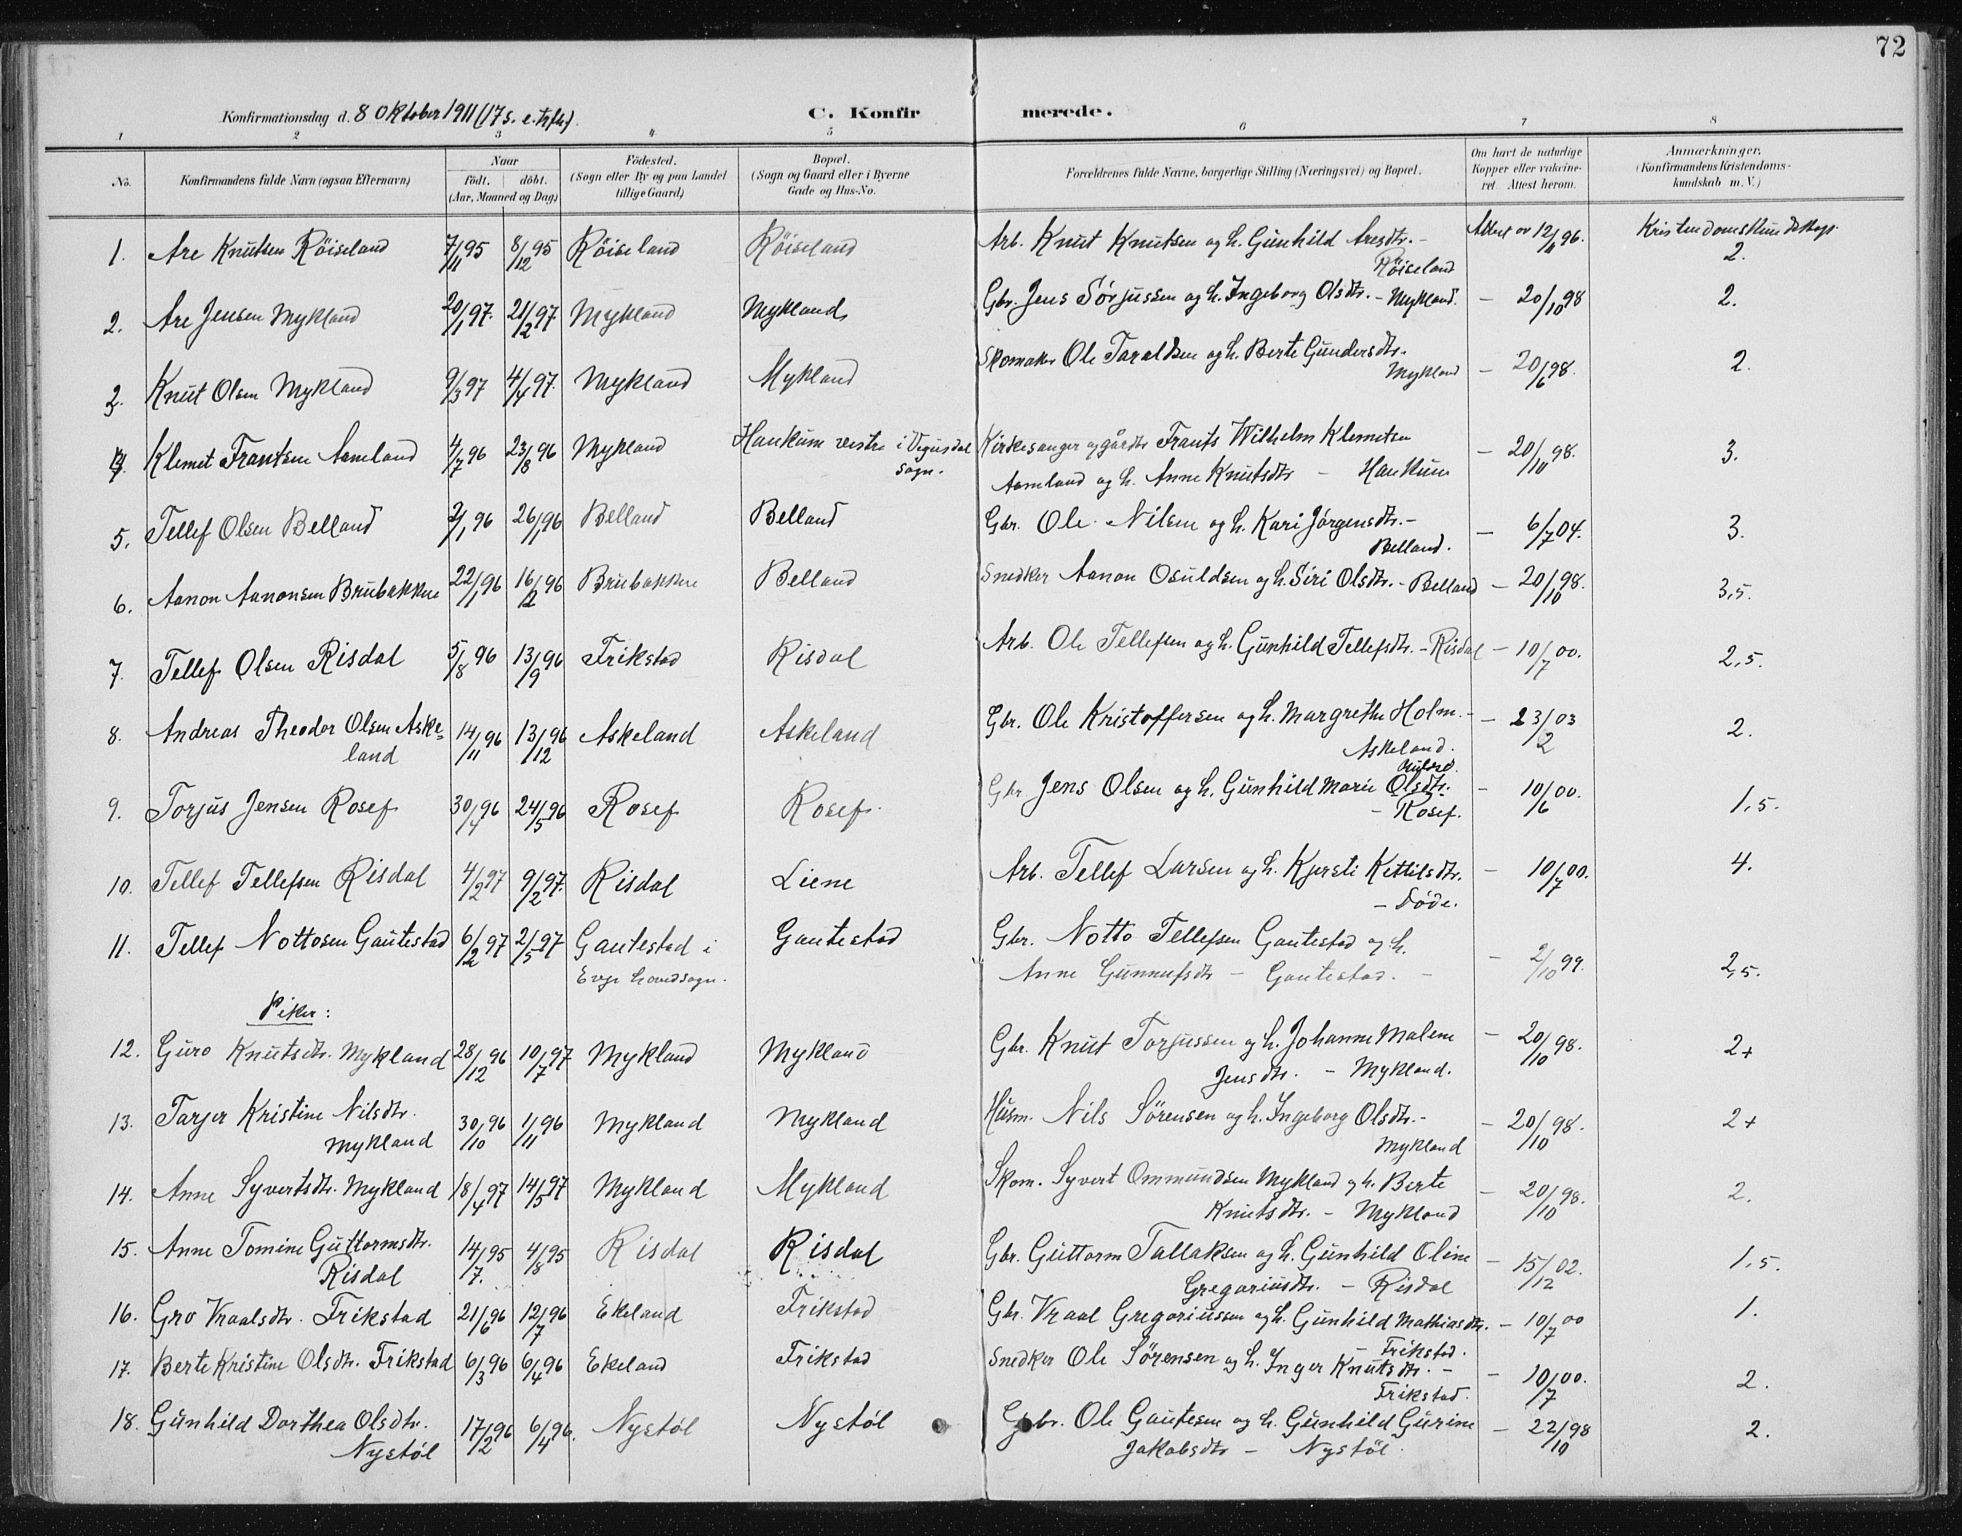 72
Konfirmationsdag d. 8 Oktober 1911 (17 s. e. trfh.) C. Konfirmerede.
1 2 3 4 5 6 7 8
No. Konfirmandens fulde Navn (ogsaa Efternavn) Naar födt. döbt. (Aar, Maaned og Dag) Födested. (Sogn eller By og paa Landet tillige Gaard) Bopæl. (Sogn og Gaard eller i Byerne Gade og Hus-No. Forældrenes fulde Navne, borgerlige Stilling (Næringsvei) og Bopæl. Om havt de naturlige Kopper eller vakcineret. Attest herom. Anmærkninger. (Konfirmandens Kristendomskundskab m. V.)
1. Are Knutsen Röiseland 7/11 95 8/12 95 Röiseland Röiseland Arb. Knut Knutsen og h. Gunhild Aresdtr. - Röiseland Attest av 12/11 96. Kristendomskundskap. 2.
2. Are Jensen Mykland 20/1 97. 21/2 97 Mykland Mykland Gbr. Jens Sørjussen og h. Ingeborg Olsdtr. - Mykland. - 20/10 98 2.
3. Knut Olsen Mykland 9/3 97 4/4 97. Mykland Mykland Skomaker Ole Taraldsen og h. Berte Gundersdtr. Mykland - 20/6 98. 2.
4. Klemet Frantsen Aamland 4/7 96 23/8 96 Mykland Haukum vestre i Vegusdal sogn. Kirkesanger og gårdbr Frants Wilhelm Klemetsen
Aamland og h. Anne Knutsdtr - Haukum - 20/10 98. 3.
5. Tellef Olsen Belland 2/1 96 26/1 96 Belland Belland Gbr. Ole Nilsen og h. Kari Jörgensdtr. - Belland. - 6/7 04. 3.
6. Aanon Aanonsen Brubakken 22/1 96 16/2 96 Brubakken Belland Snedker Aanon Osuldsen og h. Siri Olsdtr. - Belland - 20/10 98. 3,5.
7. Tellef Olsen Risdal 5/8 96 13/9 96 Frikstad Risdal Arb. Ole Tellefsen og h. Gunhild Tellefsdtr. - Risdal - 10/7 00. 2,5.
8. Andreas Theodor Olsen Aske=
land 14/11 96 13/12 96 Askeland Askeland Gbr. Ole Kristoffersen og h. Margrethe Holm. - Askeland. - 23/2 03 2.
9. Torjus Jensen Rosef 30/4 96 24/5 96 Rosef Rosef. Gbr. Jens Olsen og h. Gunhild Marie Olsdtr. - Rosef. - 10/6 00. 1,5.
10. Tellef Tellefsen Risdal 4/2 97 9/2 97. Risdal Liene Arb. Tellef Larsen og h. Kjersti Kettilsdtr. - Döde. - 10/7 00. 4.
11. Tellef Nottosen Gautestad 6/2 97 2/5 97 Gautestad i Evje hovedsogn. Gautestad Gbr. Notto Tellefsen Gautestad og h.
Anne Gunnufsdtr - Gautestad. - 2/10 99. 2,5.
Piker:
12. Guro Knutsdtr. Mykland 28/12 96 10/7 97 Mykland Mykland Gbr. Knut Torjussen og h. Johanne Malene
Jensdtr. - Mykland. - 20/10 98. 2+
13. Tarjer Kristine Nilsdtr.
Mykland 30/10 96 1/11 96 Mykland Mykland Husm. Nils Sörensen og h. Ingeborg Olsdtr. - Mykland - 20/10 98. 2+
14. Anne Syvertsdtr. Mykland 18/4 97 14/5 97 Mykland Mykland Skom. Syvert Ommundsen Mykland og h. Berte
Knutsdtr. - Mykland - 20/10 98. 2.
15. Anne Tomine Guttormsdtr.
Risdal 14/7. 95 4/8 95 Risdal Risdal Gbr. Guttorm Tallaksen og h. Gunhild Oline
Gregoriusdtr. - Risdal - 15/12 02. 1,5.
16. Gro Vraalsdtr. Frikstad 21/6 96 12/7 96 Ekeland Frikstad Gbr. Vraal Gregoriussen og h. Gunhild Mathiasdtr. - Frikstad. - 10/7 00 1.
17. Berte Kristine Olsdtr. Frikstad 6/3 96 6/4 96 Ekeland Frikstad Snedker Ole Sörensen og h. Inger Knutsdtr. - Frikstad. - 10/7 00. 2.
18. Gunhild Dorthea Olsdtr.
Nystöl 17/2 96 6/4 96. Nystöl Nystöl Gbr. Ole Gautesen og h. Gunhild Gurine
Jakobsdtr - Nystöl. - 22/10 98 2.